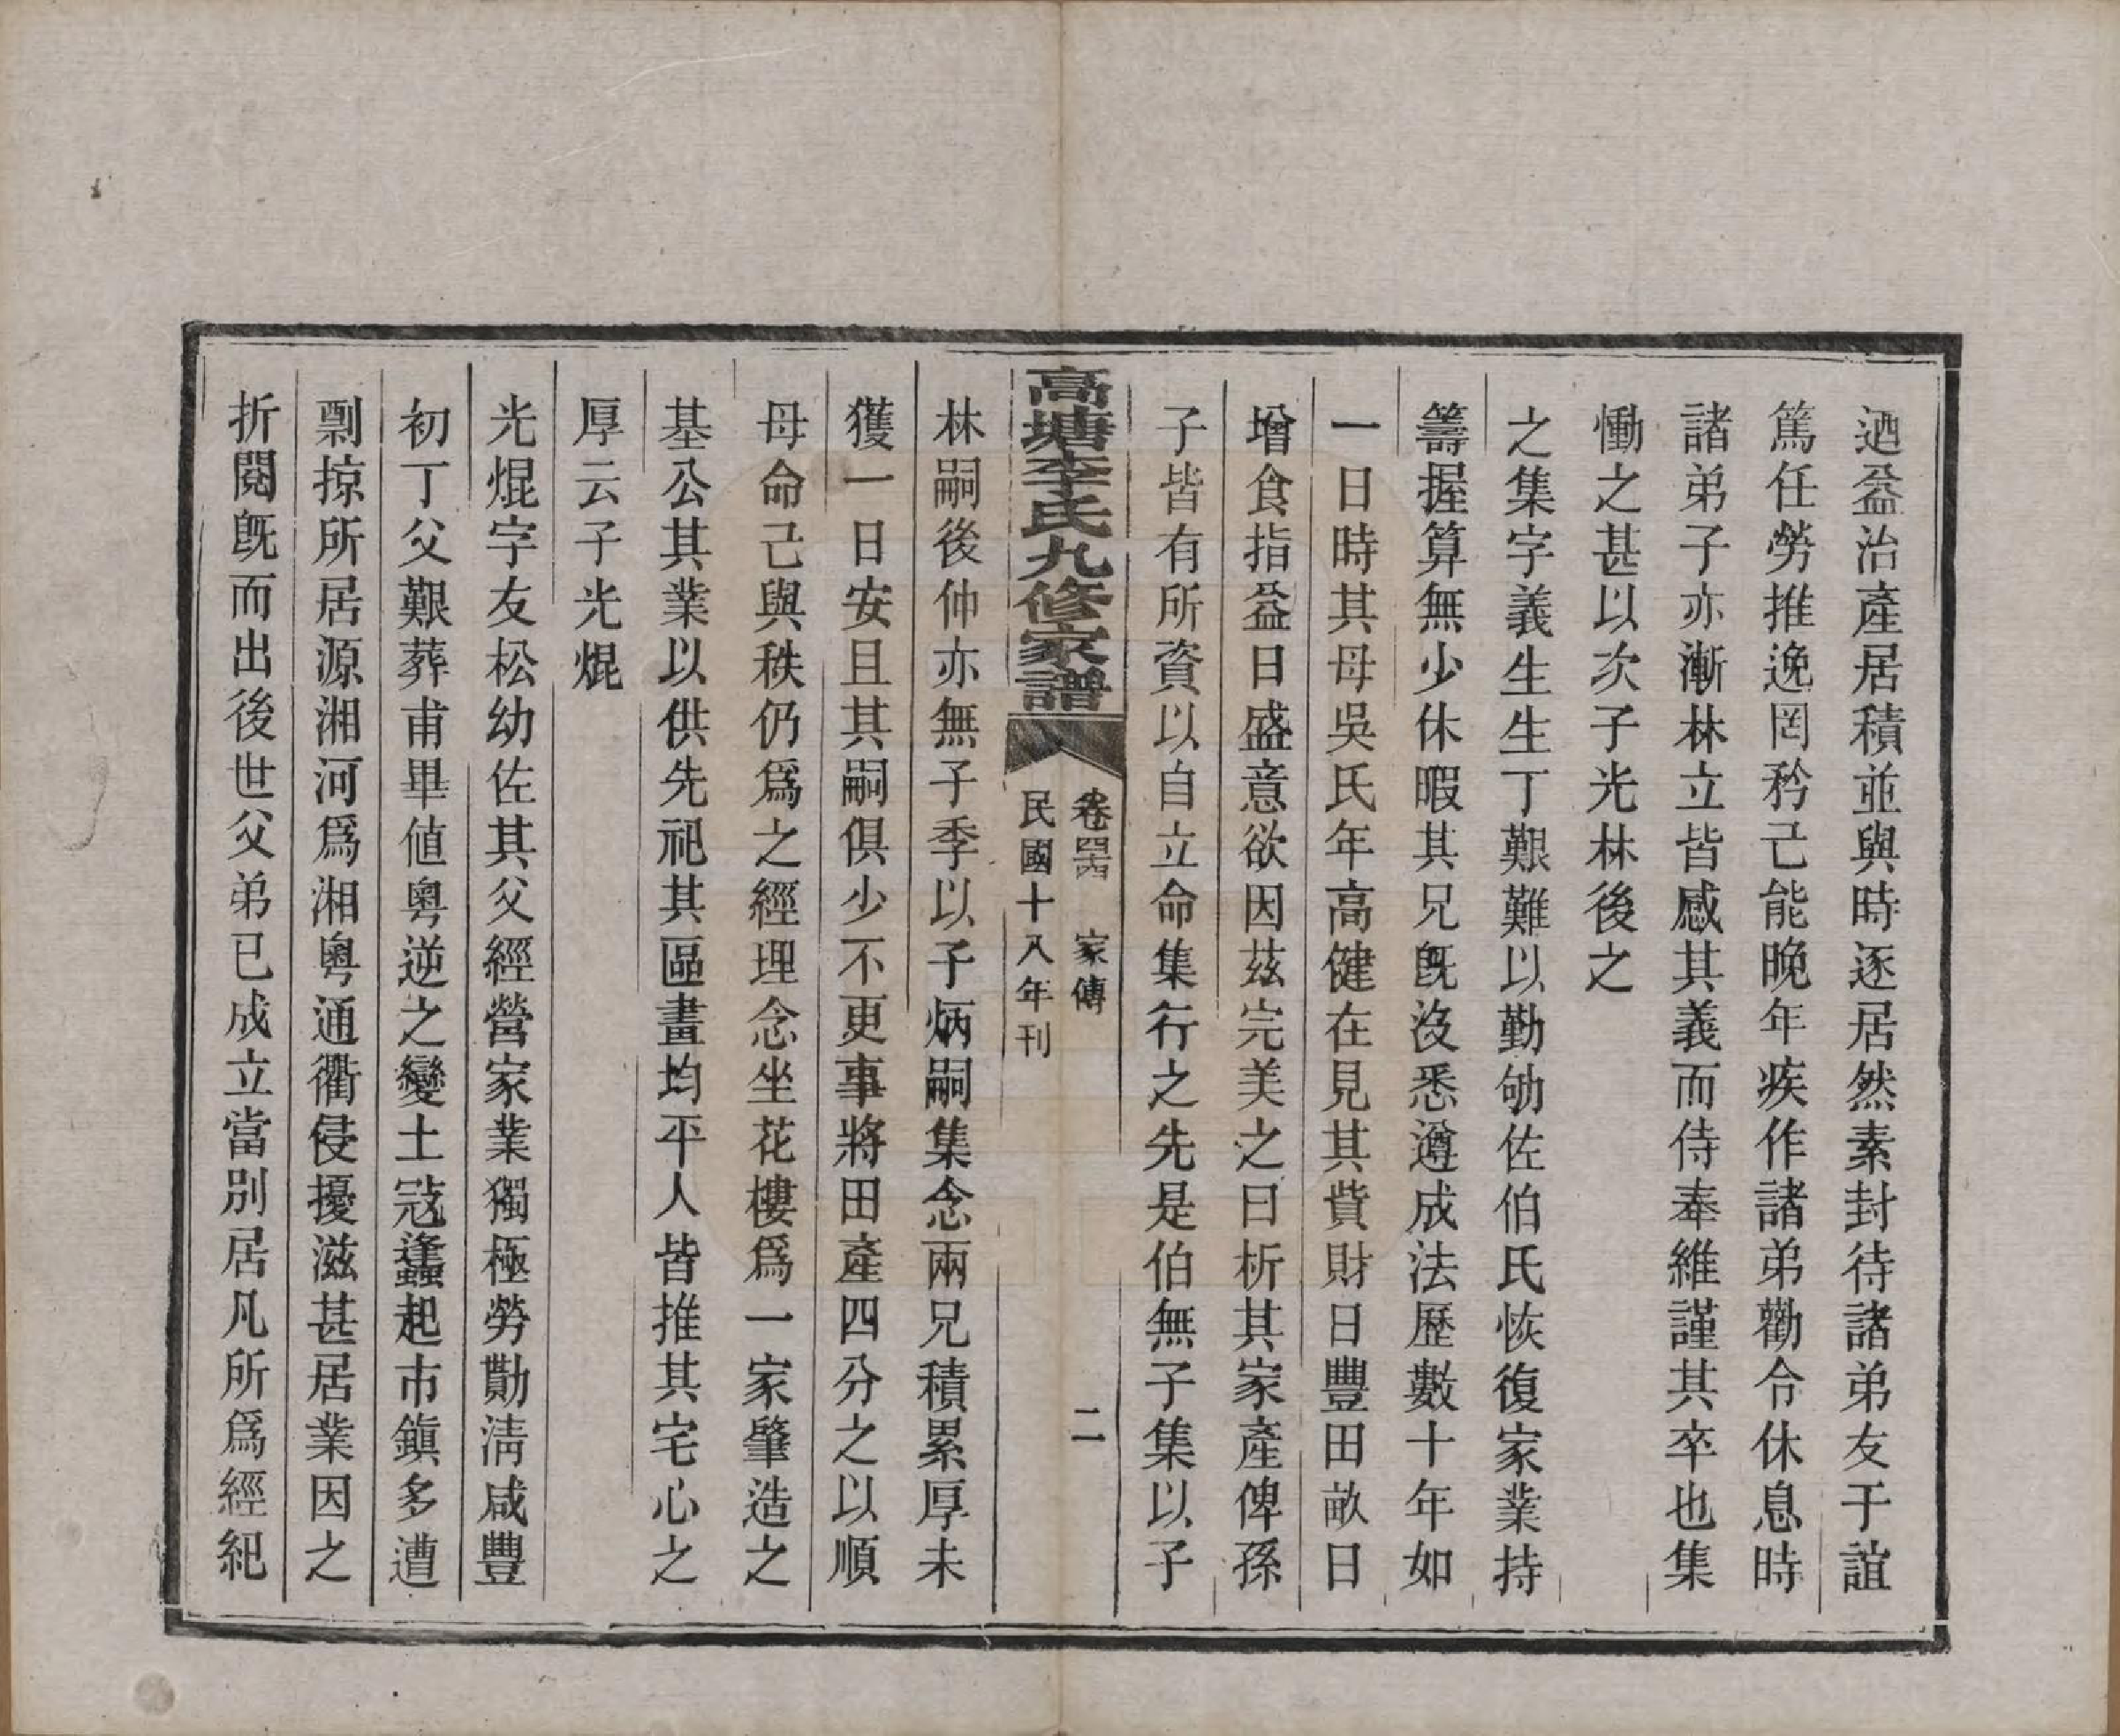 迺益治產居積並與時逐居然素封待諸弟友于誼
篤任勞推逸罔矜己能晚年疾作諸弟勸令休息時
諸弟子亦漸林立皆感其義而侍奉維謹其卒也集
慟之甚以次子光林後之
之集字義生生丁艱難以勤劬佐伯氏恢復家業持
籌握算無少休暇其兄旣沒悉遵成法歷數十年如
一日時其母吳氏年高健在見其貲財日豐田畝日
增食指益日盛意欲因茲完美之日析其家產俾孫
子皆有所資以自立命集行之先是伯無子集以子
高塘李氏九修家譜
卷四 家傳
二
民國十八年刊
林嗣後仲亦無子季以子炳嗣集念兩兄積累厚未
獲一日安且其嗣俱少不更事將田產四分之以順
母命己與秩仍爲之經理念坐花樓爲一家肇造之
基公其業以供先祀其區畫均平人皆推其宅心之
厚云子光焜
光焜字友松幼佐其父經營家業獨極勞勩淸咸豐
初丁父艱葬甫畢値粵逆之變土寇蠭起市鎭多遭
剽掠所居源湘河爲湘粵通衢侵擾滋甚居業因之
折閱旣而出後世父弟已成立當別居凡所爲經紀